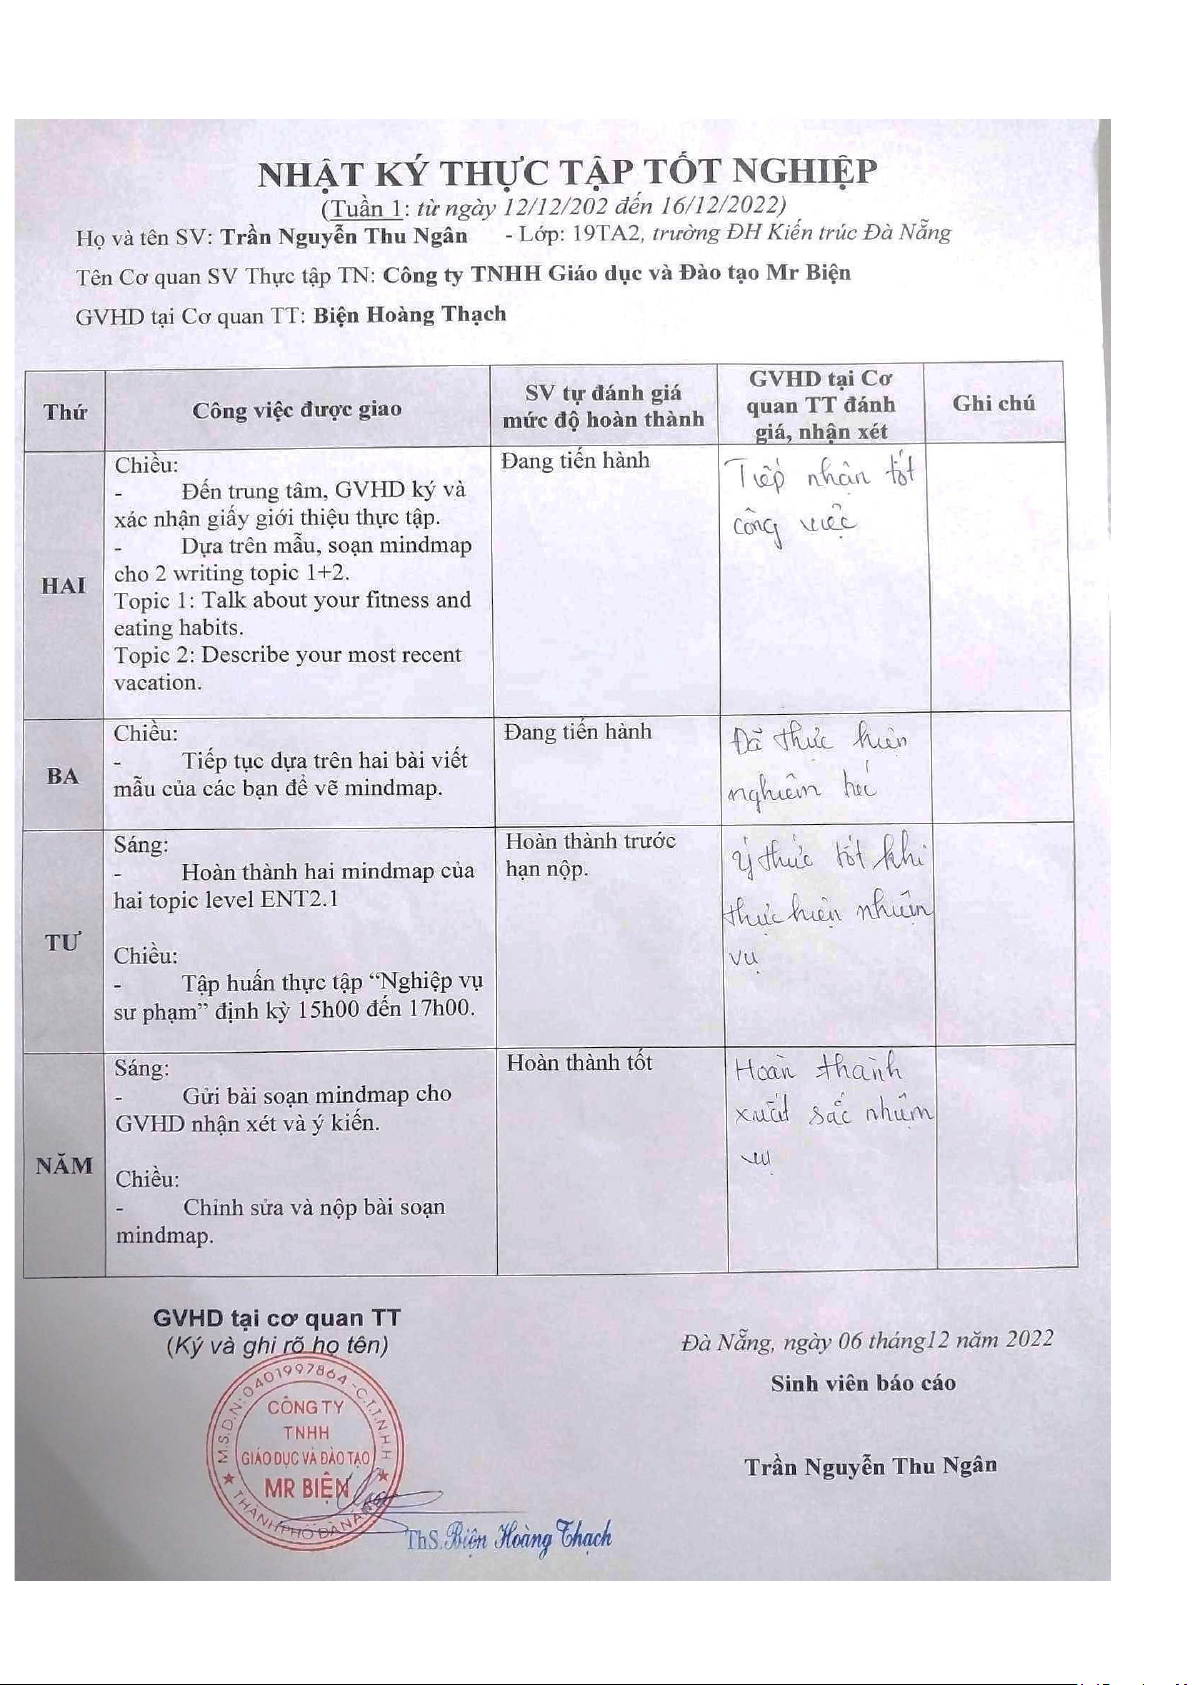 NHẬT KÝ THỰC TẬP TỐT NGHIỆP
(Tuần 1: từ ngày 12/12/202 đến 16/12/2022)
Họ và tên SV: Trần Nguyễn Thu Ngân - Lớp: 19TA2, trường ĐH Kiến trúc Đà Nẵng
Tên Cơ quan SV Thực tập TN: Công ty TNHH Giáo dục và Đào tạo Mr Biện
GVHD tại Cơ quan TT: Biện Hoàng Thạch
Thứ
Công việc được giao
SV tự đánh giá
mức độ hoàn thành
GVHD tại Cơ
quan TT đánh
giá, nhận xét
Ghi chú
HAI
Chiều:
- Đến trung tâm, GVHD ký và
xác nhận giấy giới thiệu thực tập.
- Dựa trên mẫu, soạn mindmap
cho 2 writing topic 1+2.
Topic 1: Talk about your fitness and
eating habits.
Topic 2: Describe your most recent
vacation.
Đang tiến hành
Tiếp nhận tốt
công việc
BA
Chiều:
- Tiếp tục dựa trên hai bài viết
mẫu của các bạn để vẽ mindmap.
Đang tiến hành
Đã thực hiện
nghiêm túc
TƯ
Sáng:
- Hoàn thành hai mindmap của
hai topic level ENT2.1
Chiều:
- Tập huấn thực tập “Nghiệp vụ
sư phạm” định kỳ 15h00 đến 17h00.
Hoàn thành trước
hạn nộp.
Ý thức tốt khi
thực hiện nhiệm
vụ
NĂM
Sáng:
- Gửi bài soạn mindmap cho
GVHD nhận xét và ý kiến.
Chiều:
- Chỉnh sửa và nộp bài soạn
mindmap.
Hoàn thành tốt
Hoàn thành
xuất sắc nhiệm
vụ
GVHD tại cơ quan TT
(Ký và ghi rõ họ tên)
Đà Nẵng, ngày 06 tháng12 năm 2022
Sinh viên báo cáo
Trần Nguyễn Thu Ngân
M.S.D.N: 0401997864 - C.T.T.N.H.H
CÔNG TY
TNHH
GIÁO DỤC VÀ ĐÀO TẠO
MR BIỆN
THÀNH PHỐ ĐÀ NẴNG
ThS. Biện Hoàng Thạch